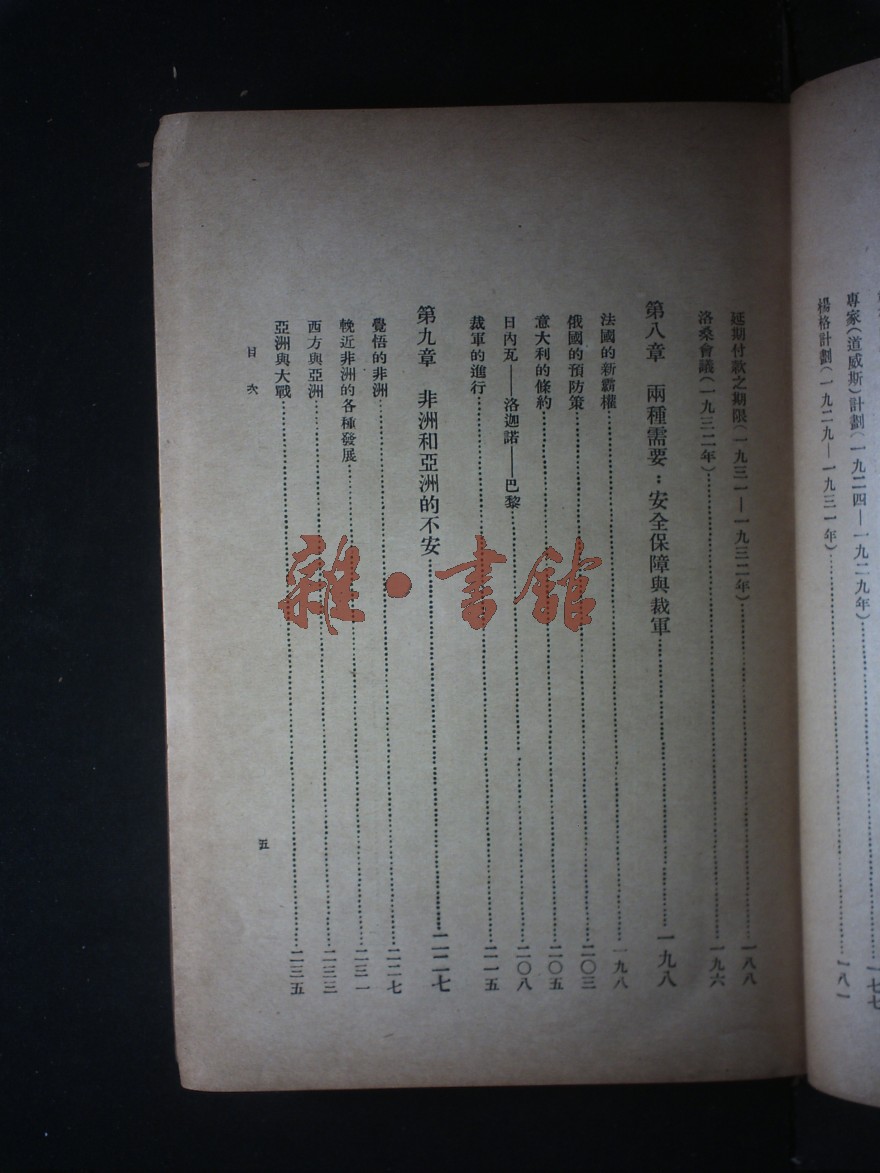 專家(道威斯)計劃(一九二四—一九二九年)……一七七
楊格計劃(一九二九—一九三一年)……一八一
延期付款之期限(一九三一—一九三二年)……一八八
洛桑會議(一九三二年)……一九六
第八章 兩種需要：安全保障與裁軍……一九八
法國的新霸權……一九八
俄國的預防策……二〇三
意大利的條約……二〇五
日內瓦——洛迦諾——巴黎……二〇八
裁軍的進行……二一五
第九章 非洲和亞洲的不安……二二七
覺悟的非洲……二二七
輓近非洲的各種發展……二三一
西方與亞洲……二三三
亞洲與大戰……二三五
目次
五
雜·書館